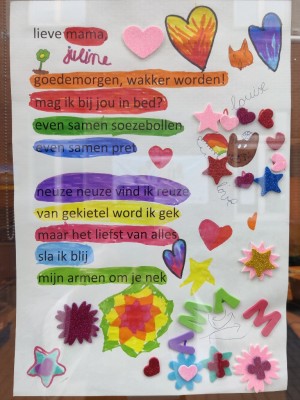 lieve mama,
juline
goedemorgen, wakker worden!
mag ik bij jou in bed?
even samen soezebollen
even samen pret
louise
neuze neuze vind ik reuze
van gekietel word ik gek
maar het liefst van alles
sla ik blij
mijn armen om je nek
MAMA